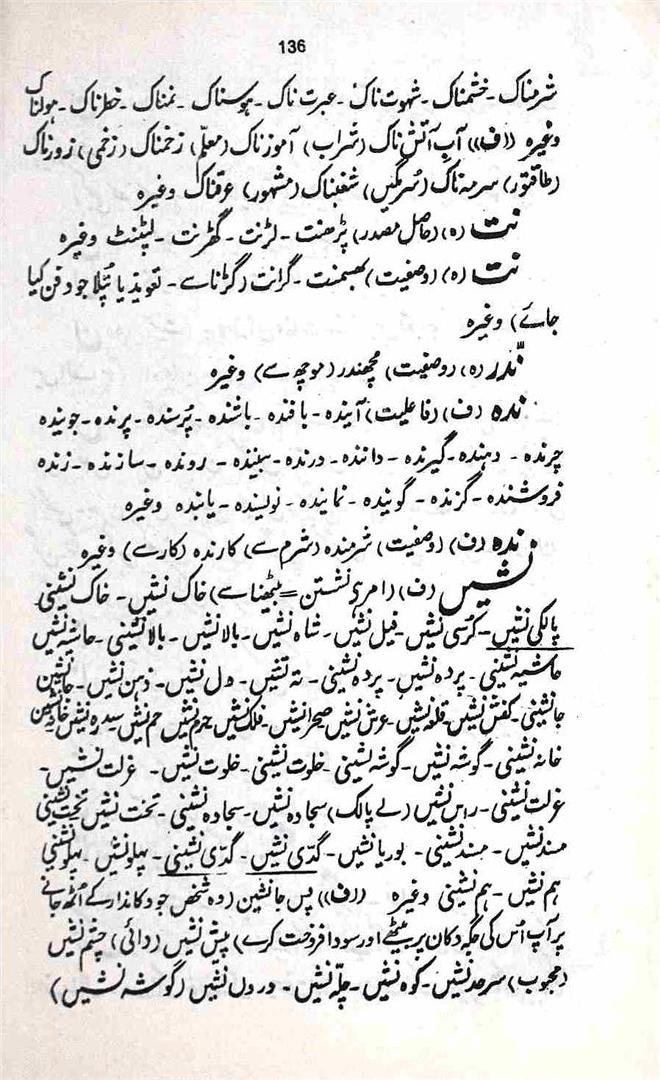 136
شرمناک۔ خشمناک۔ شہوت ناک۔ عبرت ناک۔ ہوسناک۔ نمناک۔ خطرناک۔ ہولناک
وغیرہ ((ف)) آبِ آتش ناک (شراب) آموزناک (معلّم) زخمناک (زخمی) زورناک
(طاقتور) سرمہ ناک (سُرمگیں) شغبناک (مشہور) عرقناک وغیرہ
نت (ہ) (حاصل مصدر) پڑھنت۔ لڑنت۔ گھڑنت۔ لپٹنٹ وغیرہ
نت (ہ) (وصفیت) بھسمنت۔ گرانت (گڑنا سے۔ تعویذ یا پُتلا جو دفن کیا
جائے) وغیرہ
نّدر (ہ) (وصفیت) مچھندر (موچھ سے) وغیرہ
ندہ (ف) (فاعلیت) آیندہ۔ بافندہ۔ باشندہ۔ پُرسندہ۔ پرندہ۔ جویندہ
چرندہ۔ دہندہ۔ گیرندہ۔ دانندہ۔ درندہ۔ بینندہ۔ روندہ۔ سازندہ۔ زندہ
فروشندہ۔ گزندہ۔ گویندہ۔ نمایندہ۔ نویسندہ۔ یابندہ وغیرہ
ندہ (ف) (وصفیت) شرمندہ (شرم سے) کارندہ (کار سے) وغیرہ
نشیں (ف) (امر از نشستن = بیٹھنا سے) خاک نشیں۔ خاک نشینی
پالکی نشیں۔ کرسی نشیں۔ فیل نشیں۔ شاہ نشیں۔ بالا نشیں۔ بالا نشینی۔ حاشیہ نشیں
حاشیہ نشینی۔ پردہ نشیں۔ پردہ نشینی۔ تہ نشیں۔ دل نشیں۔ ذہن نشیں۔ جانشین
جانشینی۔ کفش نشیں۔ قلعہ نشیں۔ عرش نشیں۔ صحرا نشیں۔ فلک نشیں۔ حرم نشیں۔ خم نشیں۔ سدرہ نشیں۔ خانہ نشیں
خانہ نشینی۔ گوشہ نشیں۔ گوشہ نشینی۔ خلوت نشینی۔ خلوت نشیں۔ عزلت نشیں۔
عزلت نشینی۔ راس نشیں (لے پالک) سجادہ نشیں۔ سجادہ نشینی۔ تخت نشیں۔ تخت نشینی
مسند نشیں۔ مسند نشینی۔ بوریا نشیں۔ گدّی نشیں۔ گدّی نشینی۔ پہلو نشیں۔ پہلو نشینی
ہم نشیں۔ ہم نشینی وغیرہ ((ف)) پس جانشین (وہ شخص جو دکاندار کے اُٹھ جانے
پر آپ اُس کی جگہ دکان پر بیٹھے اور سودا فروخت کرے) پیش نشیں (دائی) چشم نشیں
(محبوب) سرحد نشیں۔ کوہ نشیں۔ چلّہ نشیں۔ دروں نشیں (گوشہ نشیں)